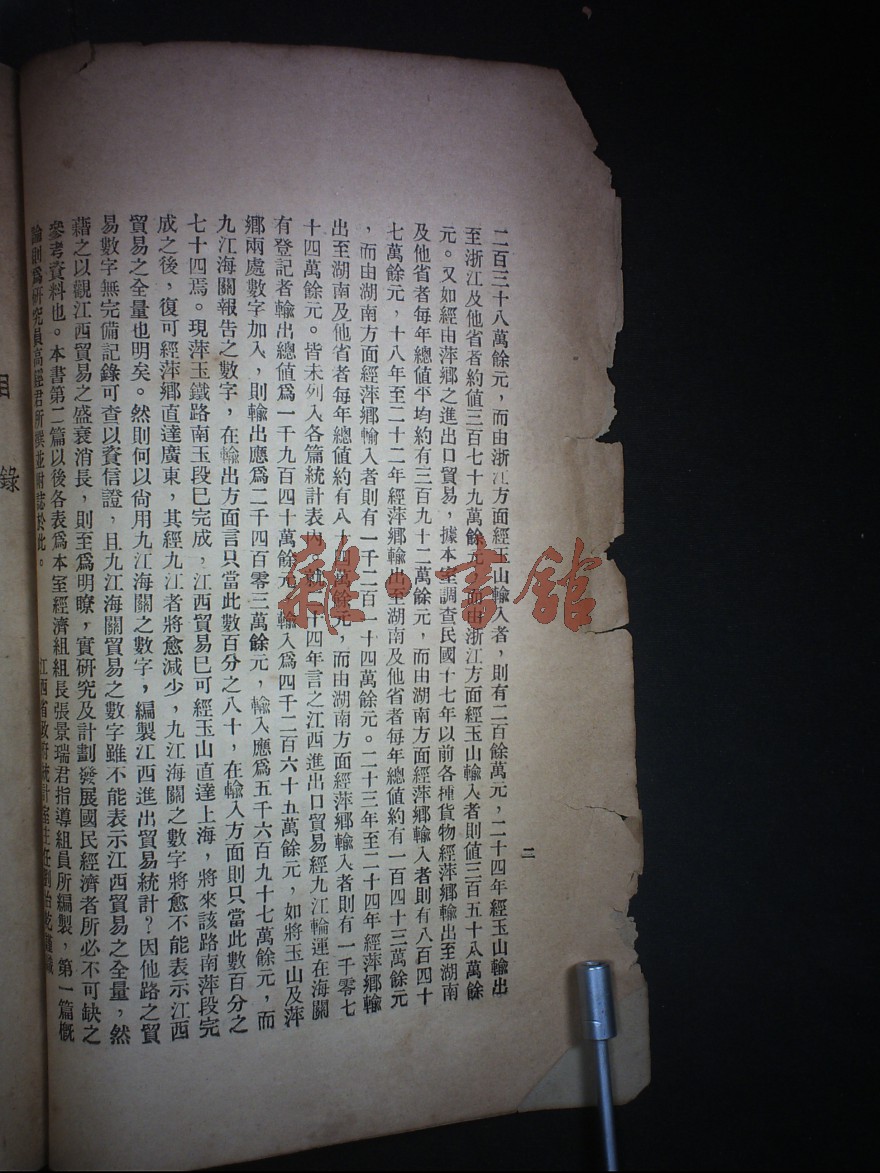 二百三十八萬餘元，而由浙江方面經玉山輸入者，則有二百餘萬元，二十四年經玉山輸出
至浙江及他省者約値三百七十九萬餘元，而由浙江方面經玉山輸入者則値三百五十八萬餘
元。又如經由萍鄉之進出口貿易，據本室調查民國十七年以前各種貨物經萍鄉輸出至湖南
及他省者每年總値平均約有三百九十二萬餘元，而由湖南方面經萍鄉輸入者則有八百四十
七萬餘元，十八年至二十二年經萍鄉輸出至湖南及他省者每年總値約有一百四十三萬餘元
，而由湖南方面經萍鄉輸入者則有一千二百一十四萬餘元。二十三年至二十四年經萍鄉輸
出至湖南及他省者每年總値約有八十四萬餘元，而由湖南方面經萍鄉輸入者則有一千零七
十四萬餘元。皆未列入各篇統計表內。十四年言之江西進出口貿易經九江輪運在海關
有登記者輸出總値爲一千九百四十萬餘元，輸入爲四千二百六十五萬餘元，如將玉山及萍
鄉兩處數字加入，則輸出應爲二千四百零三萬餘元，輸入應爲五千六百九十七萬餘元，而
九江海關報告之數字，在輸出方面言只當此數百分之八十，在輸入方面則只當此數百分之
七十四焉。現萍玉鐵路南玉段已完成，江西貿易已可經玉山直達上海，將來該路南萍段完
成之後，復可經萍鄉直達廣東，其經九江者將愈減少，九江海關之數字將愈不能表示江西
貿易之全量也明矣。然則何以尙用九江海關之數字，編製江西進出貿易統計？因他路之貿
易數字無完備記錄可查以資信證，且九江海關貿易之數字雖不能表示江西貿易之全量，然
藉之以觀江西貿易之盛衰消長，則至爲明瞭，實研究及計劃發展國民經濟者所必不可缺之
參考資料也。本書第二篇以後各表爲本室經濟組組長張景瑞君指導組員所編製，第一篇槪
論則爲研究員高君所撰並附誌於此。
江西省政府統計室主任劉治乾謹識
二
目錄
雜·書館